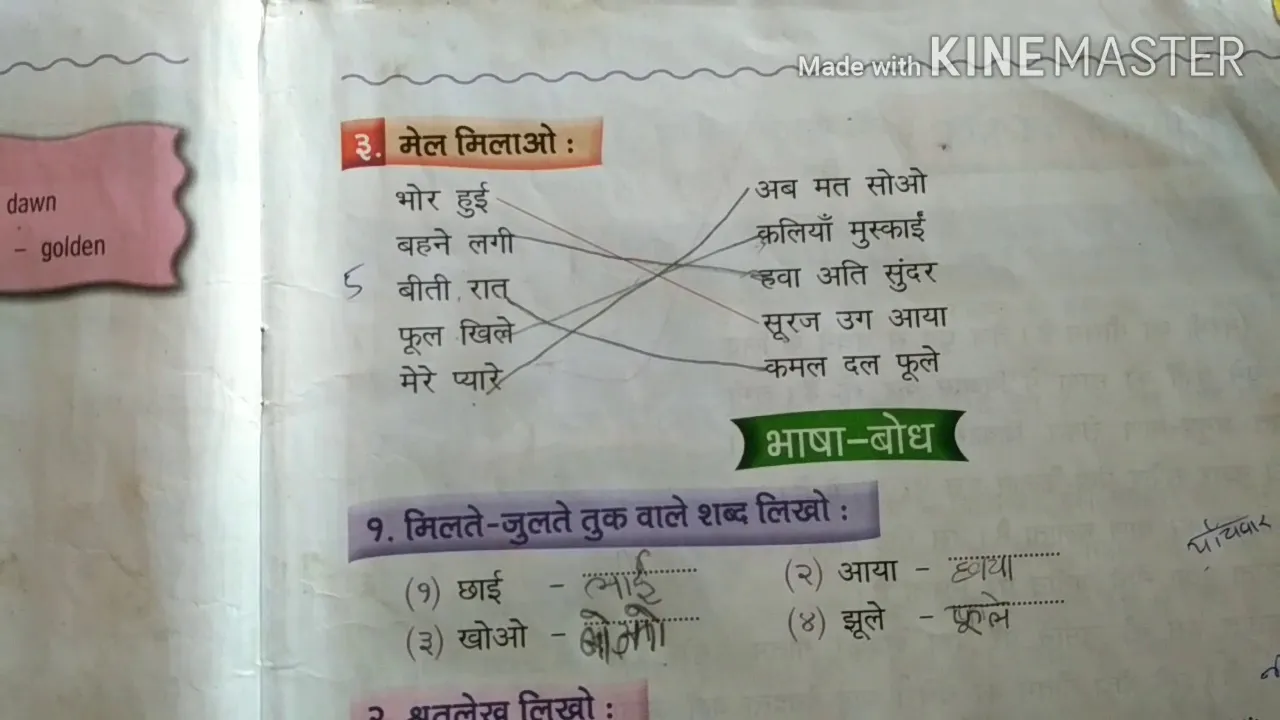 Made with KINEMASTER
dawn
– golden
३. मेल मिलाओ :
भोर हुई अब मत सोओ
बहने लगी कलियाँ मुस्काईं
५ बीती रात हवा अति सुंदर
फूल खिले सूरज उग आया
मेरे प्यारे कमल दल फूले
भाषा-बोध
१. मिलते-जुलते तुक वाले शब्द लिखो :
(१) छाई – लाई (२) आया – छाया
(३) खोओ – (४) झूले – फूले
२. श्रुतलेख लिखो :